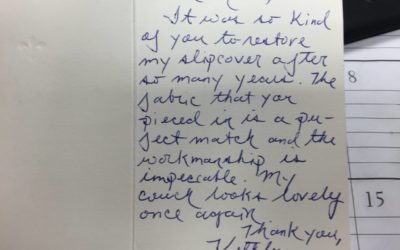 It was so kind
of you to restore
my slipcover after
so many years. The
fabric that you
pieced in is a per-
fect match and the
workmanship is
impeccable. My
couch looks lovely
once again
Thank you,
8
15